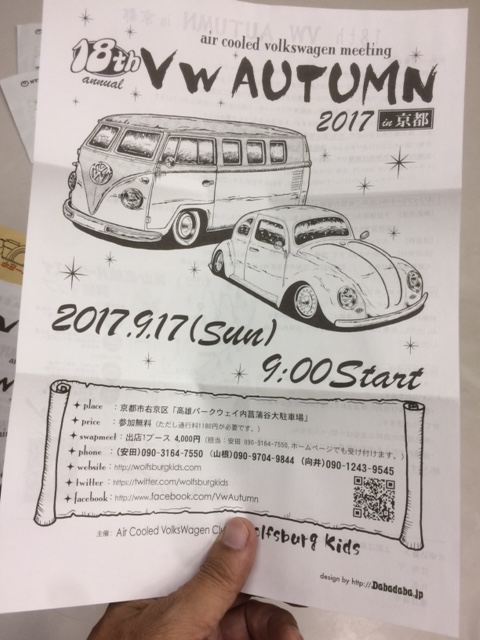 air cooled volkswagen meeting
18th annual
VW AUTUMN
2017 in 京都
2017.9.17(Sun)
9:00Start
place : 京都市右京区「高雄パークウェイ内菖蒲谷大駐車場」
price : 参加無料(ただし通行料1180円が必要です。)
swapmeet : 出店1ブース 4,000円(担当:安田 090-3164-7550, ホームページでも受け付けます。)
phone : (安田)090-3164-7550 (山根)090-9704-9844 (向井)090-1243-9545
website : http://wolfsburgkids.com
twitter : https://twitter.com/wolfsburgkids
facebook : http://www.facebook.com/VwAutumn
主催: Air Cooled VolksWagen Wolfsburg Kids
design by http://Dabadaba.jp